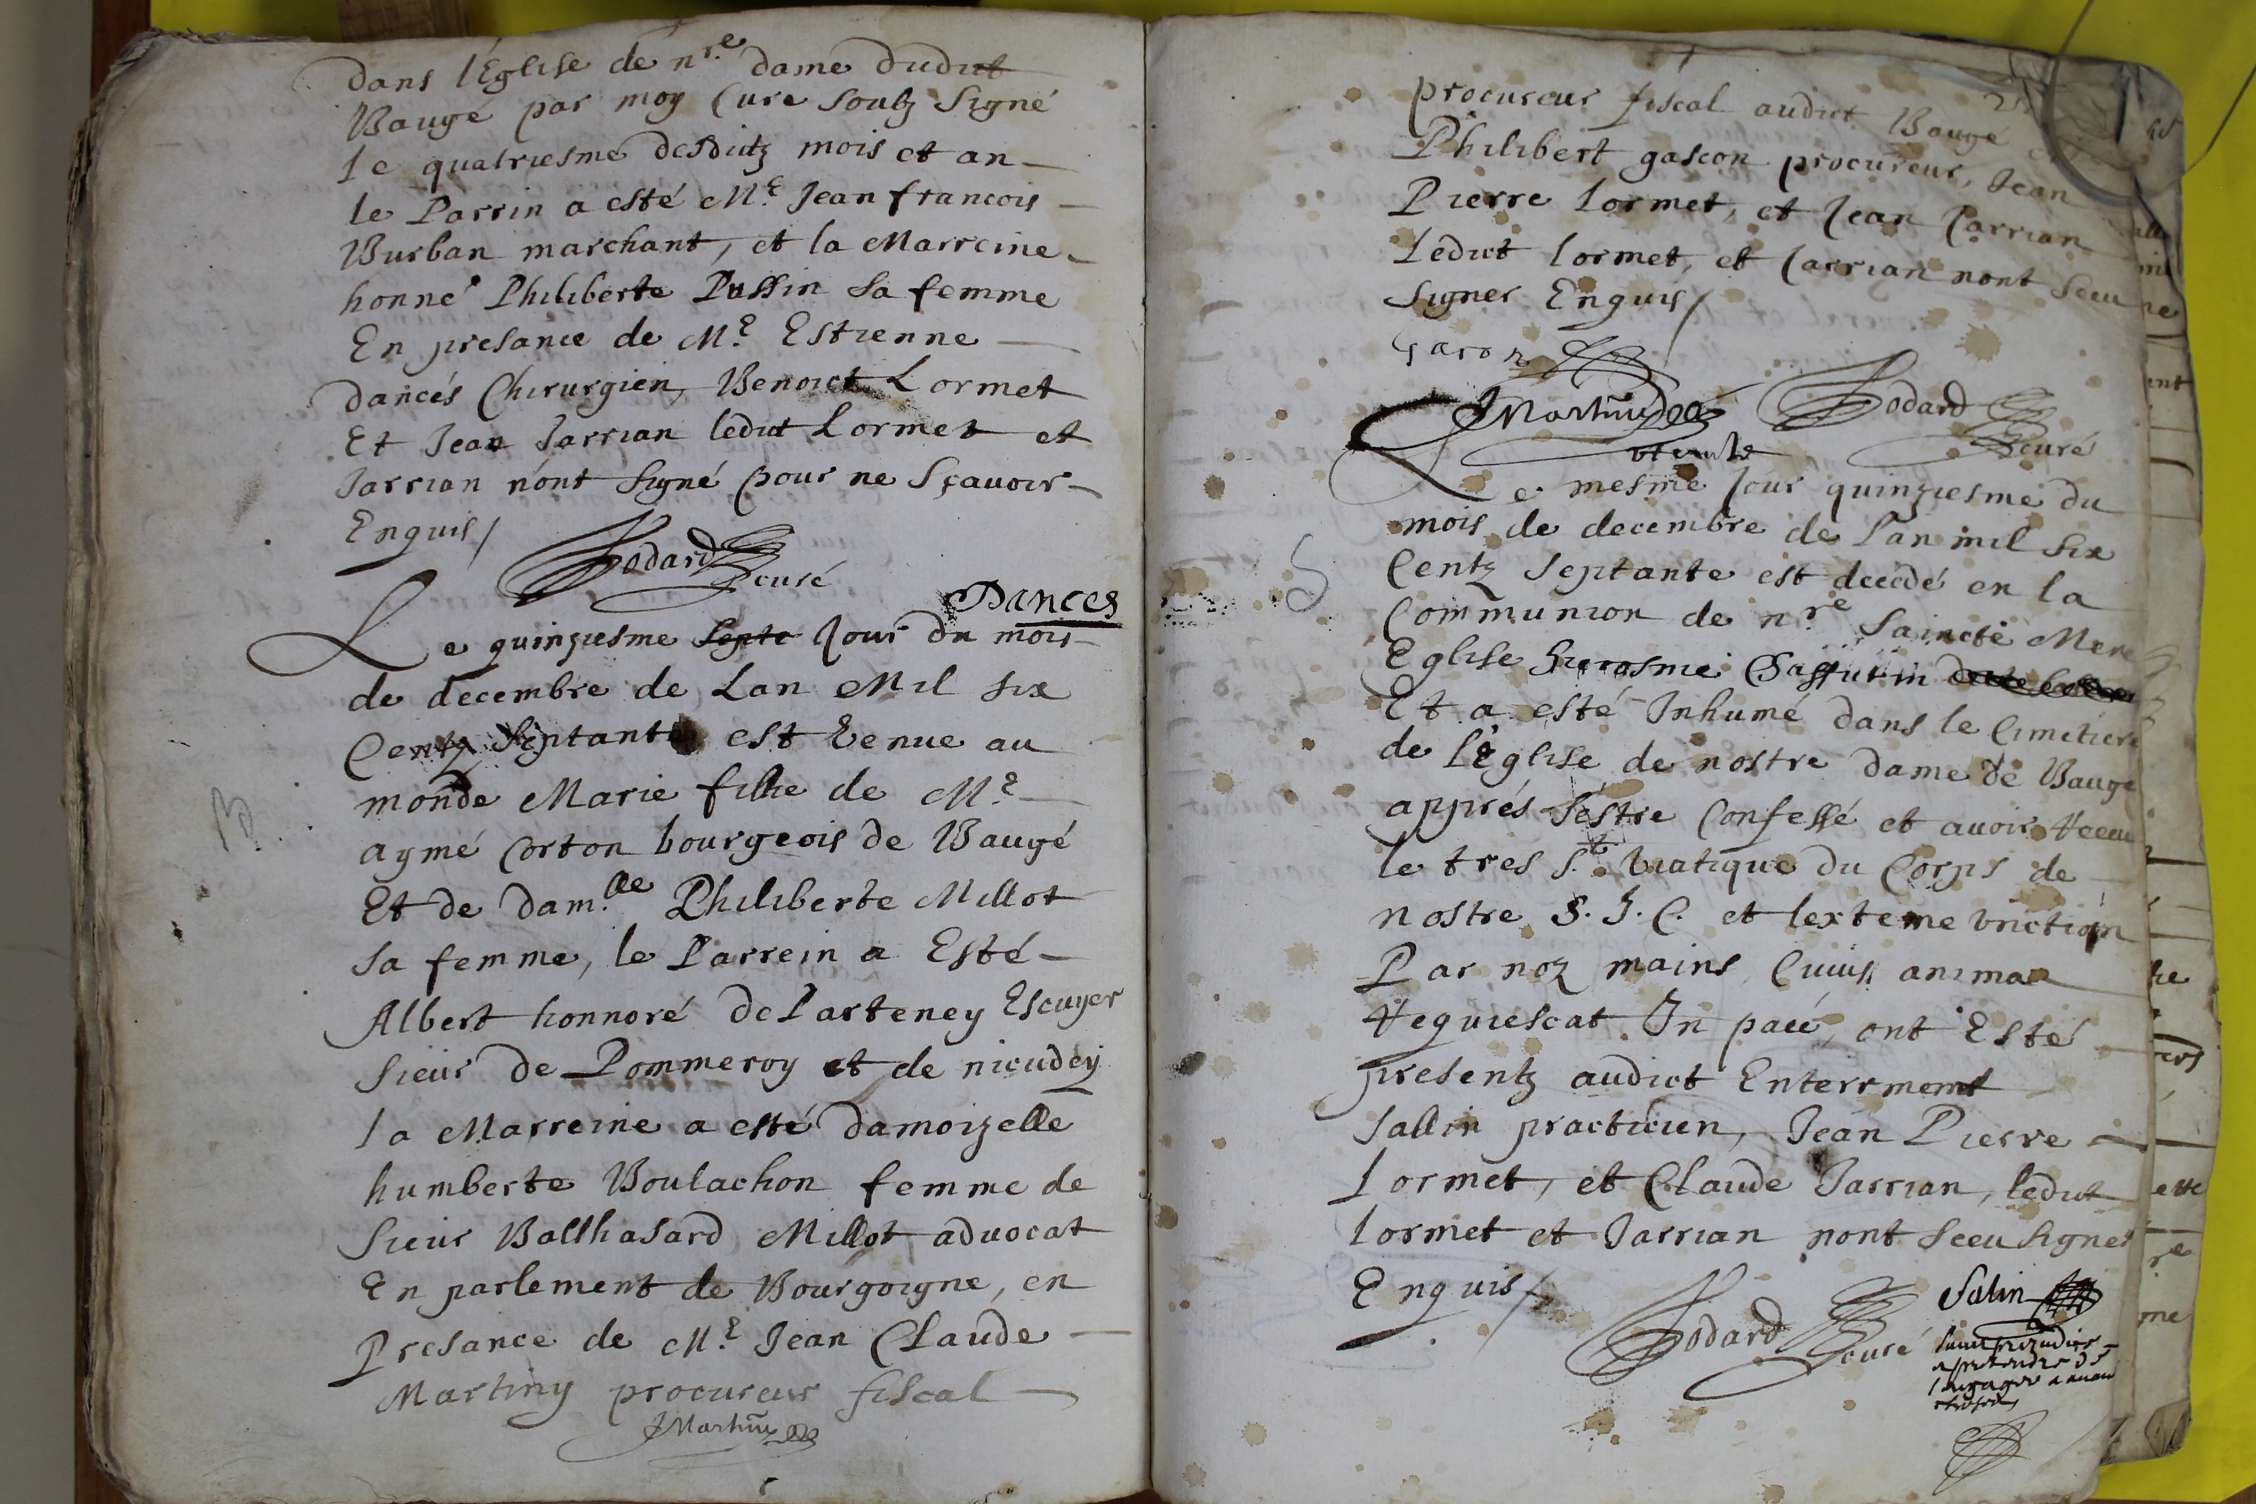 dans lEglise de nre dame dudit
Baugé par moy Curé soubz signé
le quatriesme desdictz mois et an
le Parrin a esté Me Jean francois
Burban marchant, et la Marreine
honne Philiberte Pussin sa femme
En presance de Me Estienne
dancés Chirurgien, Benoict Lormet
Et Jean Jarrian ledict Lormet et
Jarrian n'ont signé pour ne sçavoir
Enquis/
Dances
Bodard curé
Le quinziesme septe Jour du mois
de decembre de Lan Mil six
Centz Septante est venue au
monde Marie fillie de Me
aymé Corton bourgeois de Baugé
Et de damlle Philiberte Millot
sa femme, le Parrein a Esté
Albert honnoré de Parteney Escuyer
sieur de Pommeroy et de nieudey
la Marreine a esté damoizelle
humberte Boulachon femme de
sieur Balthasard Millot advocat
En parlement de Bourgoigne, en
Presance de Me Jean Claude
Martiny procureur fiscal
JMartiny
procureur fiscal audict Baugé
Philibert gascon procureur, Jean
Pierre Lormet, et Jean Jarrian
Ledict Lormet, et Jarrian nont sceu
signer Enquis/
Gacon
JMartiny Bodard
curé
Le mesme Jour quinziesme du
mois de decembre de Lan mil six
Centz Septante est decédé en la
Communion de nre Saincte Mere
Eglise hierosme
Et a esté Inhumé dans le Cimetiere
de lEglise de nostre dame de Baugé
apprés s'estre Confessé et avoir receu
le tres St viatique du Corps de
nostre S. J. C. et lexteme unction
Par noz mains Cuius anima
requiescat In pace, ont Esté
presentz audict Enterrement
Sallin practicien, Jean Pierre
Lormet, et Claude Jarrian, ledict
Lormet et Jarrian nont sceu signer
Enquis/
Bodard curé Salin